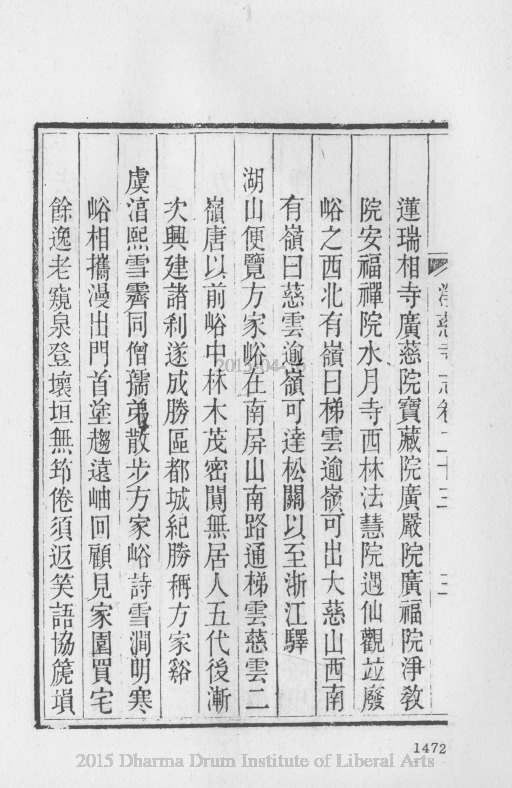 淨慈寺志卷二十三 三
蓮瑞相寺廣慈院寶藏院廣嚴院廣福院淨教
院安福禪院水月寺西林法慧院遇仙觀竝廢
峪之西北有嶺曰梯雲逾嶺可出大慈山西南
有嶺曰慈雲逾嶺可達松關以至浙江驛
湖山便覽方家峪在南屏山南路通梯雲慈雲二
嶺唐以前峪中林木茂密闃無居人五代後漸
次興建諸刹遂成勝區都城紀勝稱方家谿
虞淳熙雪霽同僧孺弟散步方家峪詩雪澗明寒
峪相攜漫出門首塗趨遠岫回顧見家園買宅
餘逸老窺泉登壞垣無笻倦須返笑語協篪塤
1472
2015 Dharma Drum Institute of Liberal Arts